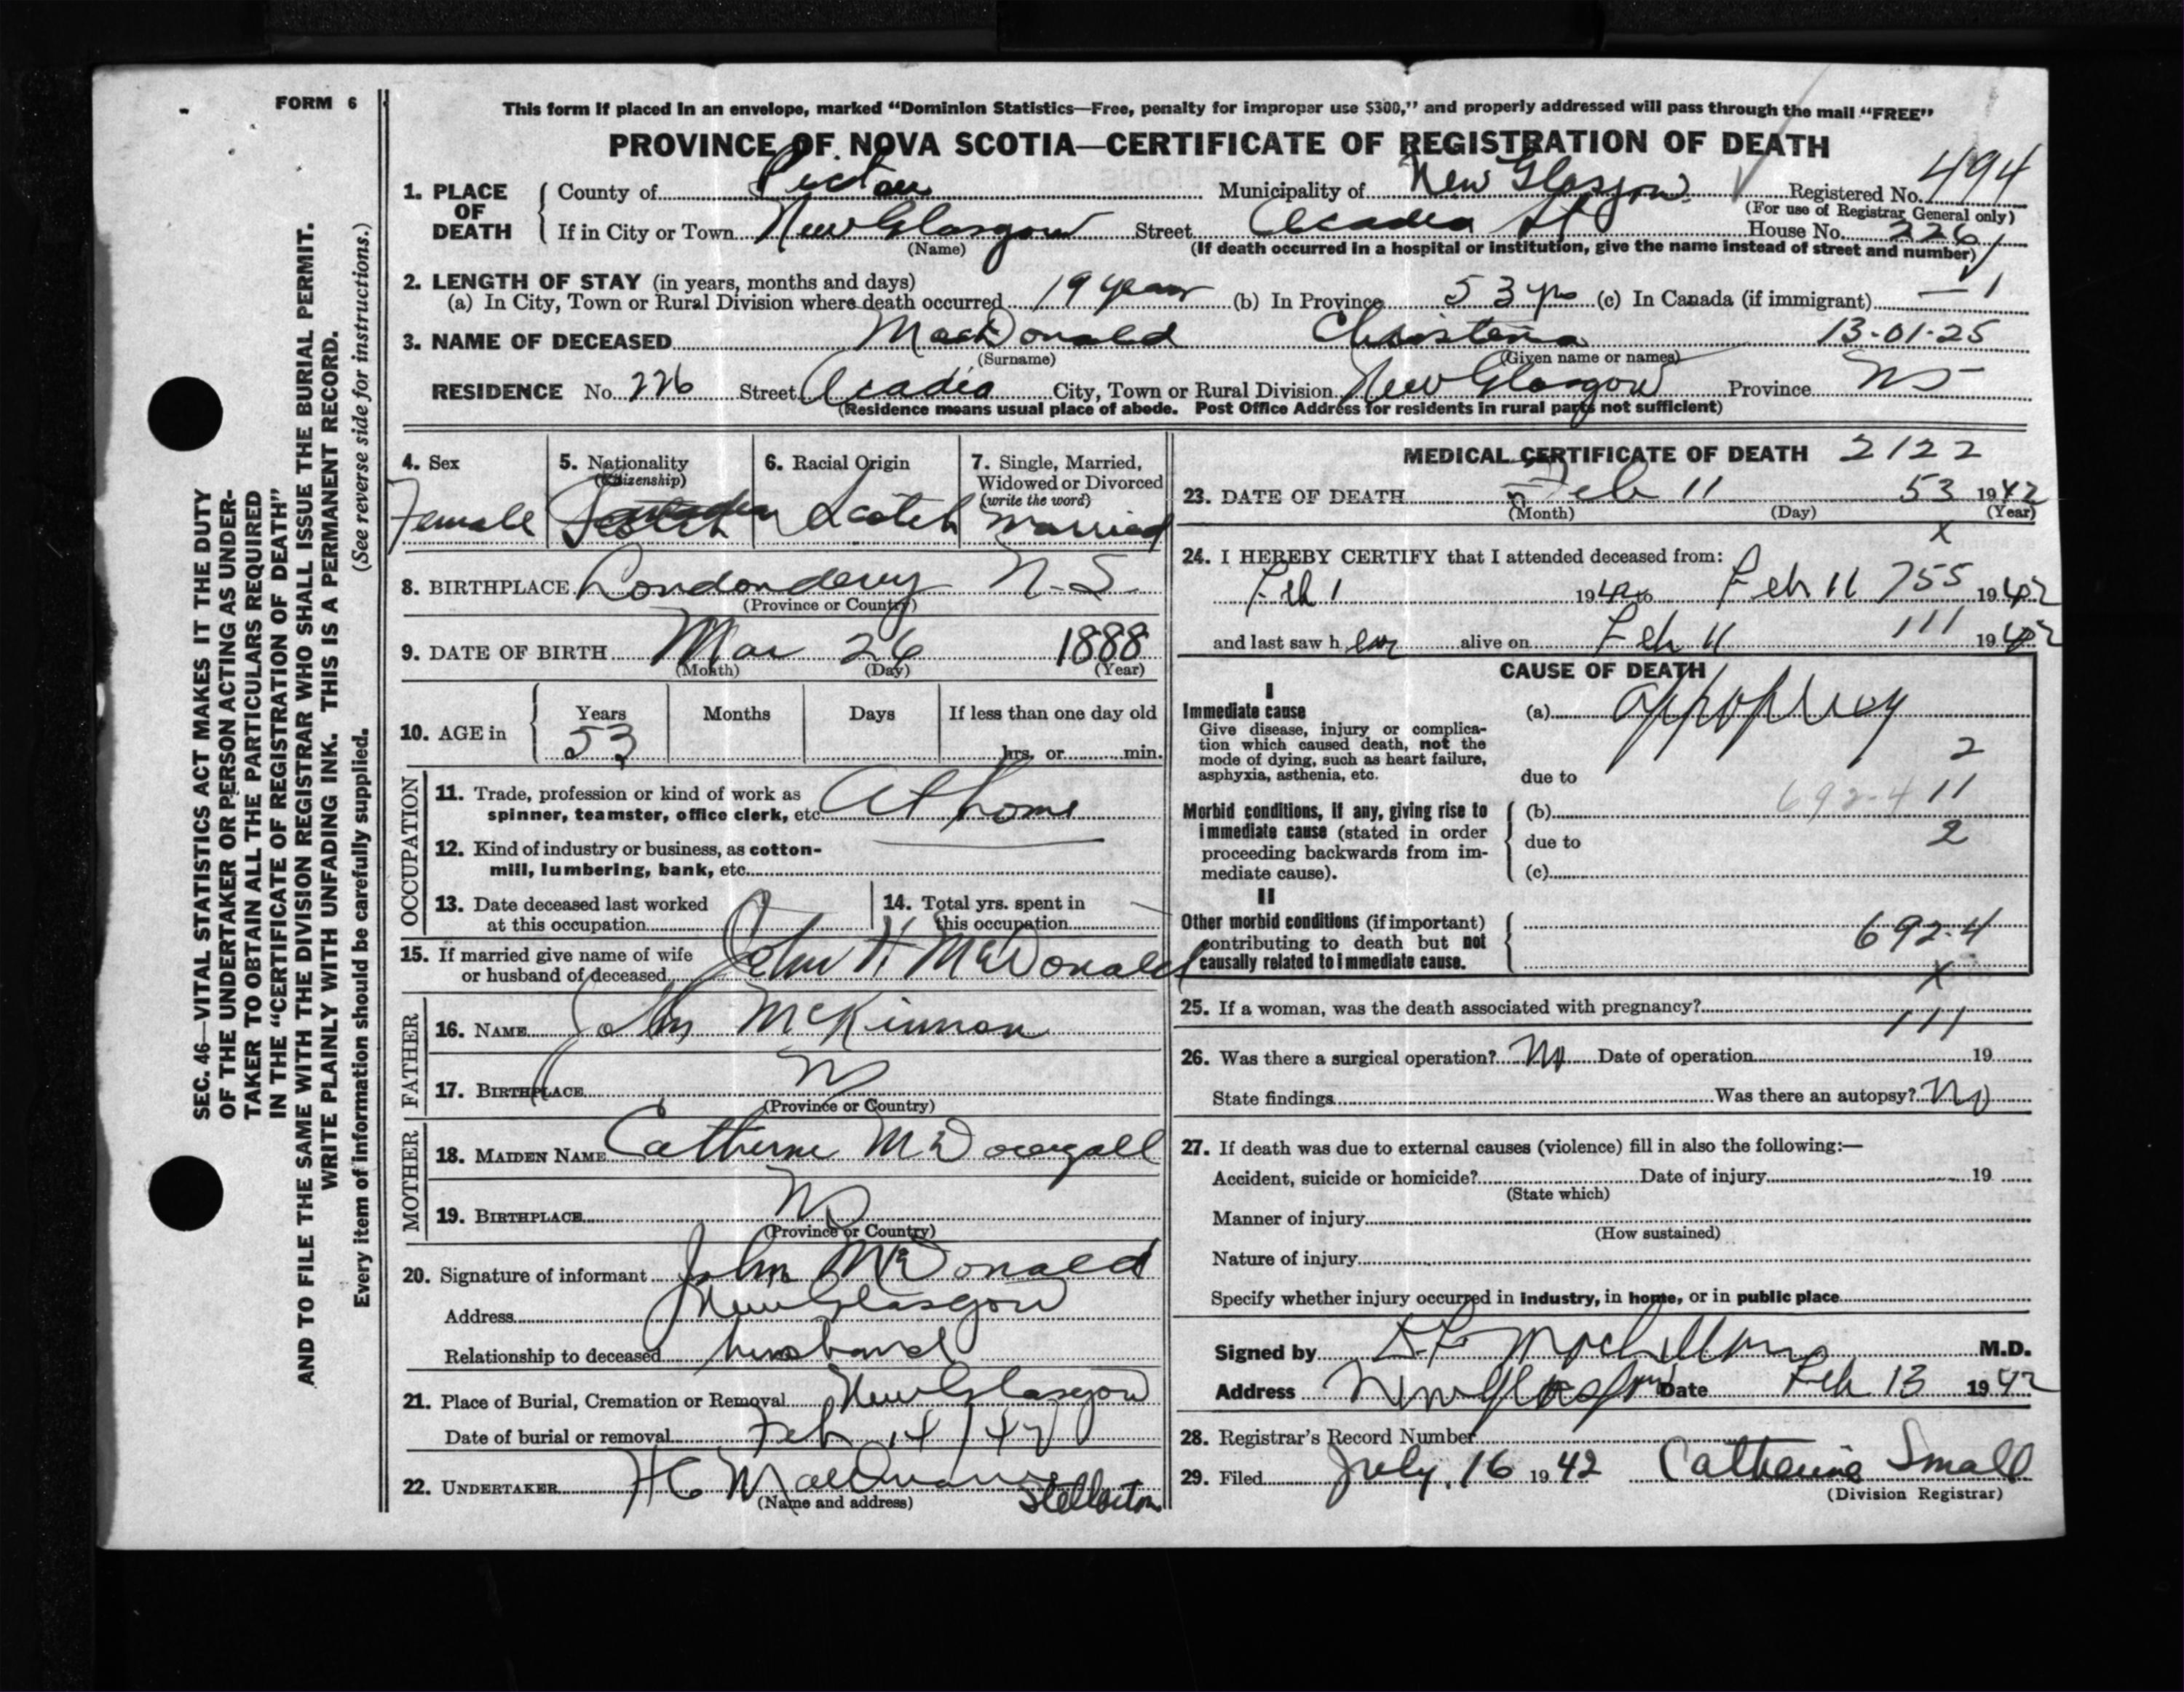 FORM 6
SEC. 46—VITAL STATISTICS ACT MAKES IT THE DUTY
OF THE UNDERTAKER OR PERSON ACTING AS UNDER-
TAKER TO OBTAIN ALL THE PARTICULARS REQUIRED
IN THE "CERTIFICATE OF REGISTRATION OF DEATH"
AND TO FILE THE SAME WITH THE DIVISION REGISTRAR WHO SHALL ISSUE THE BURIAL PERMIT.
WRITE PLAINLY WITH UNFADING INK. THIS IS A PERMANENT RECORD.
Every item of information should be carefully supplied. (See reverse side for instructions.)
This form if placed in an envelope, marked "Dominion Statistics—Free, penalty for improper use $300," and properly addressed will pass through the mail "FREE"
PROVINCE OF NOVA SCOTIA—CERTIFICATE OF REGISTRATION OF DEATH
1. PLACE OF DEATH County of Pictou Municipality of New Glasgow Registered No. 494
(For use of Registrar General only)
If in City or Town New Glasgow Street Acadia St House No. 226
(Name) (If death occurred in a hospital or institution, give the name instead of street and number)
2. LENGTH OF STAY (in years, months and days)
(a) In City, Town or Rural Division where death occurred 19 years (b) In Province 53 yrs (c) In Canada (if immigrant) — 1
3. NAME OF DECEASED MacDonald Christena 13-01-25
(Surname) (Given name or names)
RESIDENCE No. 226 Street Acadia City, Town or Rural Division New Glasgow Province NS
(Residence means usual place of abode. Post Office Address for residents in rural parts not sufficient)
4. Sex 5. Nationality (Citizenship) 6. Racial Origin 7. Single, Married, Widowed or Divorced (write the word)
Female Scotch Married
8. BIRTHPLACE Londonderry N.S.
(Province or Country)
9. DATE OF BIRTH Mar 26 1888
(Month) (Day) (Year)
10. AGE in Years Months Days If less than one day old
53 hrs. or min.
OCCUPATION
11. Trade, profession or kind of work as
spinner, teamster, office clerk, etc. At home
12. Kind of industry or business, as cotton-
mill, lumbering, bank, etc.
13. Date deceased last worked
at this occupation
14. Total yrs. spent in
this occupation
15. If married give name of wife
or husband of deceased John H McDonald
FATHER
16. NAME John McKinnon
17. BIRTHPLACE NS
(Province or Country)
MOTHER
18. MAIDEN NAME Catherine McDougall
19. BIRTHPLACE NS
(Province or Country)
20. Signature of informant John McDonald
Address New Glasgow
Relationship to deceased husband
21. Place of Burial, Cremation or Removal New Glasgow
Date of burial or removal Feb 14/42
22. UNDERTAKER H C Stellarton
(Name and address)
MEDICAL CERTIFICATE OF DEATH 2122
23. DATE OF DEATH Feb 11 53 1942
(Month) (Day) (Year)
x
24. I HEREBY CERTIFY that I attended deceased from:
Feb 1 1942 to Feb 11 755 1942
and last saw her alive on Feb 11 111 1942
CAUSE OF DEATH
I
Immediate cause
Give disease, injury or complica-
tion which caused death, not the
mode of dying, such as heart failure,
asphyxia, asthenia, etc.
(a) appoplexy
2
due to
Morbid conditions, if any, giving rise to
immediate cause (stated in order
proceeding backwards from im-
mediate cause).
(b) 692-4 11
due to 2
(c)
II
Other morbid conditions (if important)
contributing to death but not
causally related to immediate cause.
692-4
x
25. If a woman, was the death associated with pregnancy?
111
26. Was there a surgical operation? No Date of operation 19
State findings Was there an autopsy? No
27. If death was due to external causes (violence) fill in also the following:—
Accident, suicide or homicide? Date of injury 19
(State which)
Manner of injury
(How sustained)
Nature of injury
Specify whether injury occurred in industry, in home, or in public place
Signed by M.D.
Address New Glasgow Date Feb 13 1942
28. Registrar's Record Number
29. Filed July 16 1942 Catherine Small
(Division Registrar)